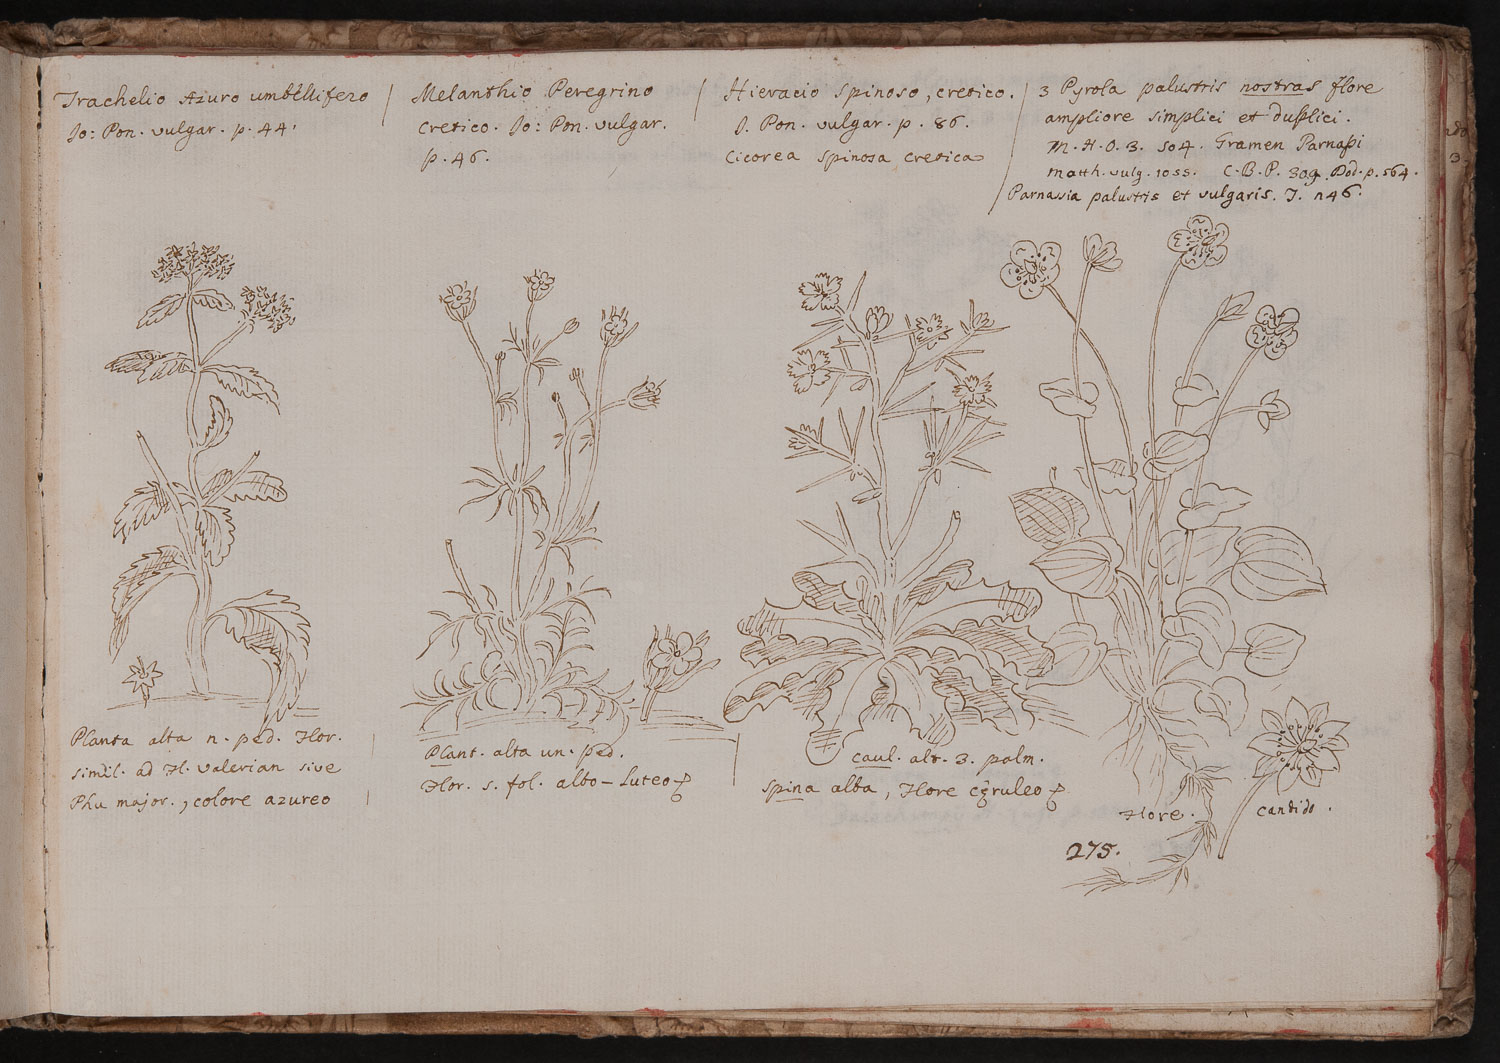 Trachelio Azuro umbellifero
Jo: Pon. vulgar. p. 44.
Melanthio Peregrino
cretico. Jo: Pon. vulgar.
p. 46.
Hieracio Spinoso, cretico.
J. Pon. vulgar. p. 86.
Cicorea Spinosa cretica
3 Pyrola palustris nostras flore
ampliore simplici et duplici.
M. H. O. 3. 504. Gramen Parnaſsi
Matth. vulg. 1055. C. B. P. 309. Dod. p. 564.
Parnassia palustris et vulgaris. J. n46.
Planta alta n. ped. Flor.
simil. ad Fl. valerian sive
Phu major., colore azureo
Plant. alta un. ped.
Flor. s. fol. albo-Luteo
caul. alt. 3. palm.
Spina alba, Flore cęruleo
Flore. candido.
275.